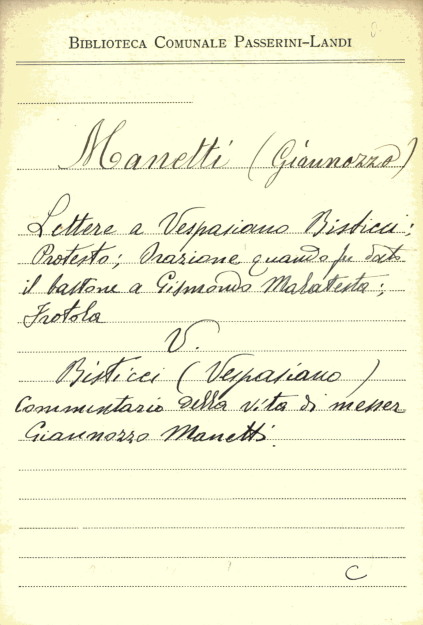 BIBLIOTECA COMUNALE PASSERINI-LANDI
Manetti (Giannozzo)
Lettere a Vespasiano Bisticci:
Protesto; Orazione quando fu dato
il bastone a Gismondo Malatesta;
Frotola
V.
Bisticci (Vespasiano)
Commentario della vita di messer
Giannozzo Manetti.
C